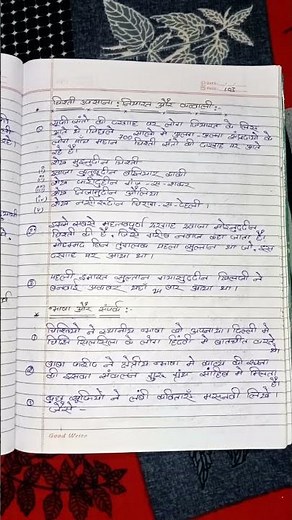 चिश्ती उपासना : जियारत और कव्वाली :-
सूफी संतों की दरगाह पर लोग जियारत के लिए
आते थे पिछले 700 सालों में अलग-अलग संप्रदायों के
लोग पांच महान चिश्ती संतों की दरगाह पर आते
रहे हैं।
शेख मुइनुद्दीन चिश्ती
ख्वाजा कुतुबुद्दीन बख्तियार काकी
शेख फरीदुद्दीन गंज-ए-शकर
शेख निजामुद्दीन औलिया
शेख नसीरुद्दीन चिराग-ए-देहली।
इनमें सबसे महत्वपूर्ण दरगाह ख्वाजा मोइनुद्दीन
चिश्ती की है, जिसे गरीब नवाज कहा जाता है।
मोहम्मद बिन तुगलक पहला सुल्तान था जो इस
दरगाह पर आया था।
पहली इमारत सुल्तान गयासुद्दीन खिलजी ने
बनवाई अकबर यहाँ 14 बार आया था।
भाषा और संपर्क :-
चिश्तियों ने स्थानीय भाषा को अपनाया। दिल्ली में
चिश्ती सिलसिला के लोग हिंदवी में बातचीत करते
थे।
बाबा फरीद ने क्षेत्रीय भाषा में काव्य की रचना
की इसका संकलन गुरु ग्रंथ साहिब में मिलता
है।
कुछ सूफियों ने लंबी कविताएँ मसनवी लिखे
जैसे -
Good Writer